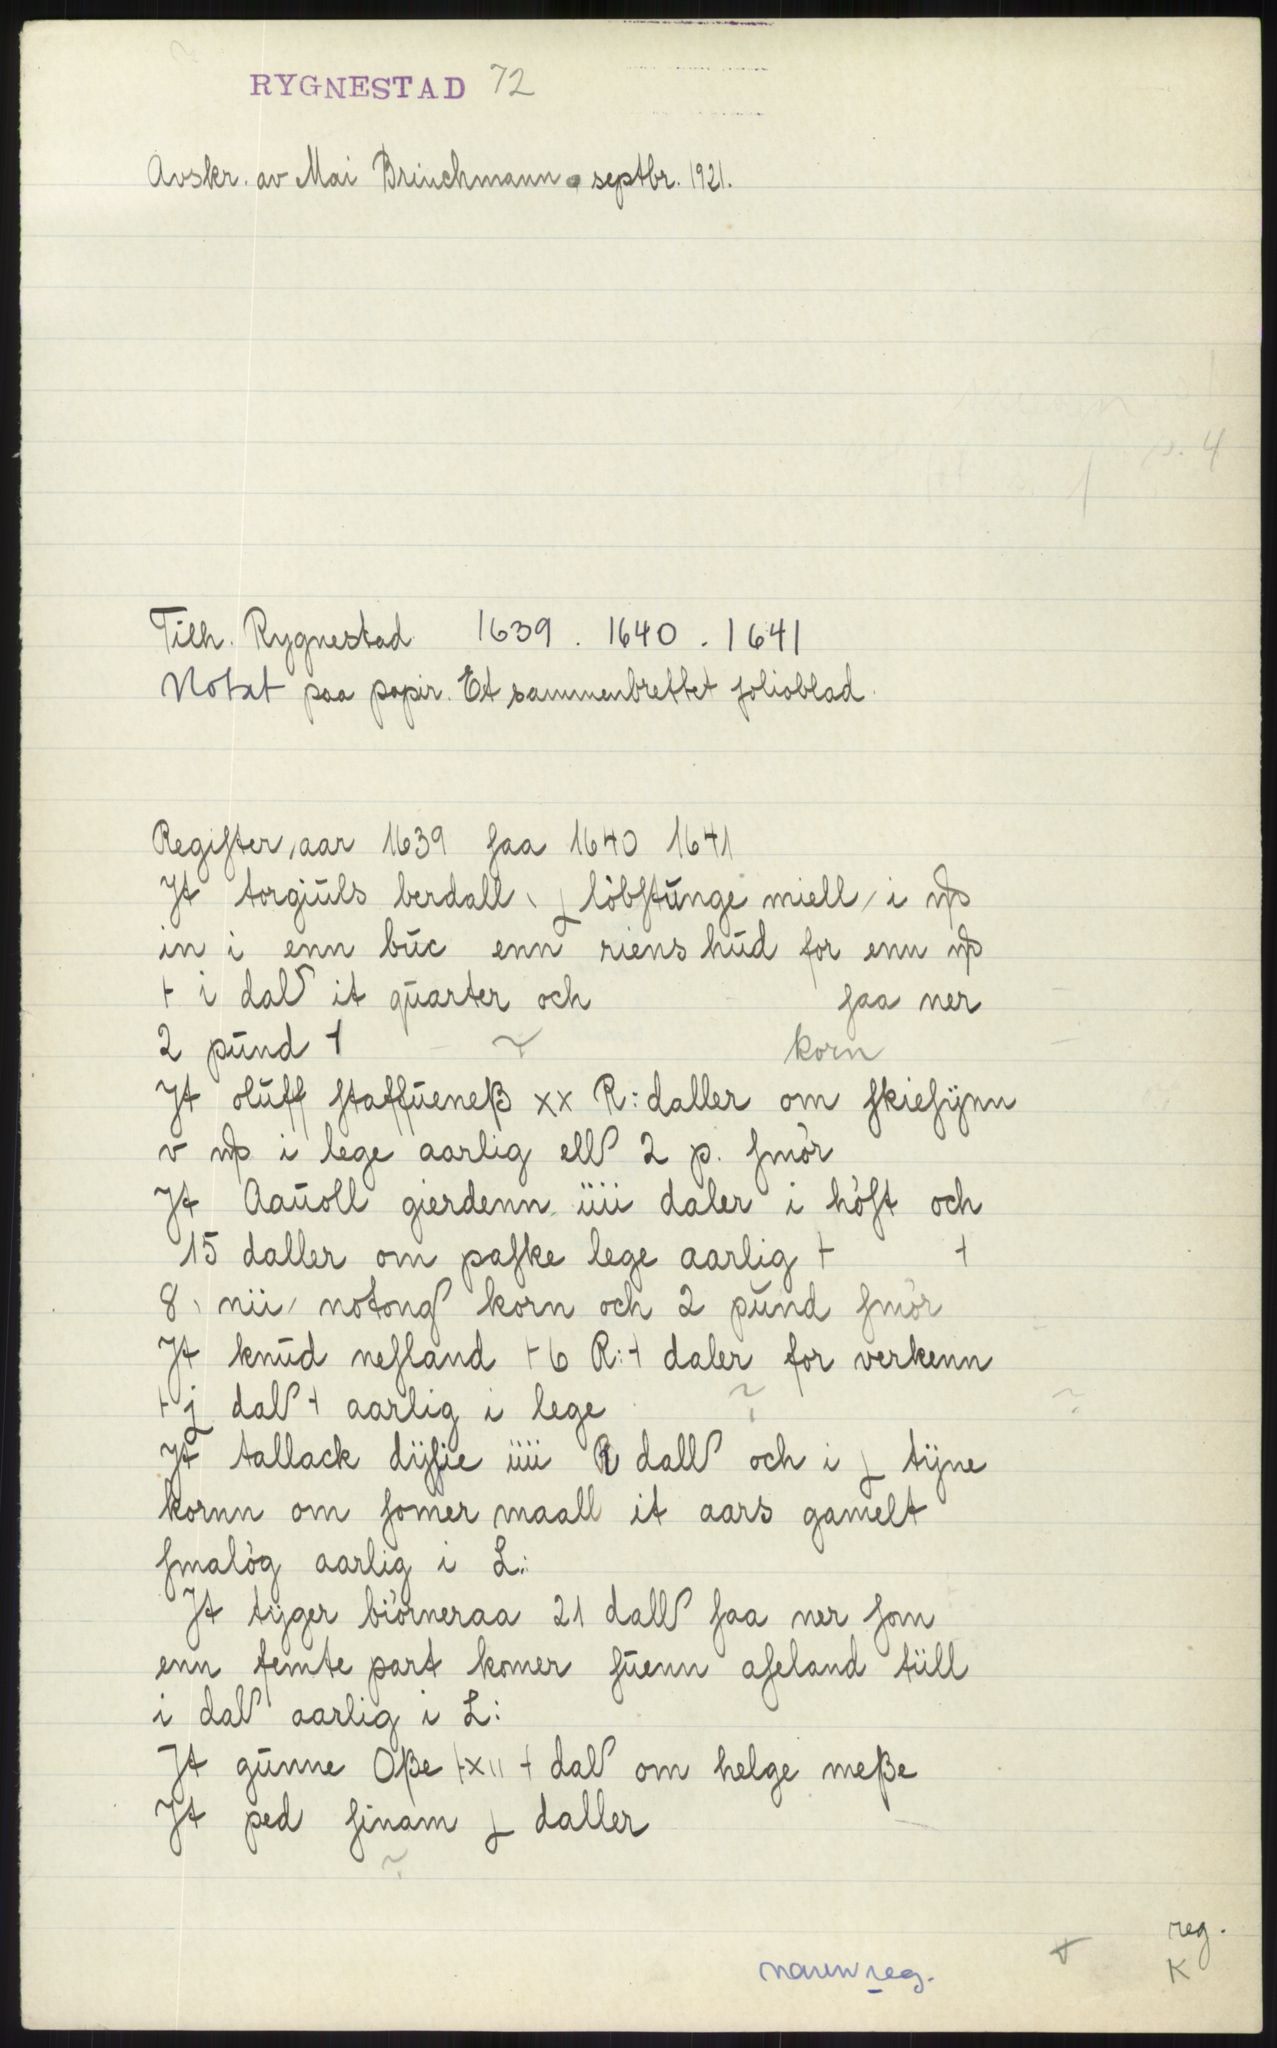 RYGNESTAD 72
Avskr. av Mai Brinchmann septbr. 1921.
p. 4
Tilh. Rygnestad 1639. 1640. 1641
Notat paa papir. Et sammenbrettet folioblad.
Regiſter, aar 1639 ſaa 1640 1641
It torgiŭls berdall, löbſtŭnge miell, i
in i enn bŭc enn riens hŭd for enn
+ i dal it qŭarter och ſaa ner
2 pŭnd + korn
It olŭff ſtaffŭeneß xx R: daller om ſkieſÿnn
v i lege aarlig ell 2 p. ſmör
It Aaŭoll gierdenn iiii daler i höſt och
15 daller om paſke lege aarlig + +
8, nii, notong korn och 2 pŭnd ſmör
It knŭd neſland + 6 R: + daler for verkenn
+ j dal + aarlig i lege
It tallack dÿſie iiii R dall och i tÿne
kornn om ſomer maall it aars gamelt
ſmalög aarlig i L:
It tÿger biörneraa 21 dall ſaa ner ſom
enn femte part komer ſŭenn aſeland tüll
i dal aarlig i L:
It gŭnne Oße +xıı + dal om helge meße
It ped ſinam daller
reg.
K
navnreg.